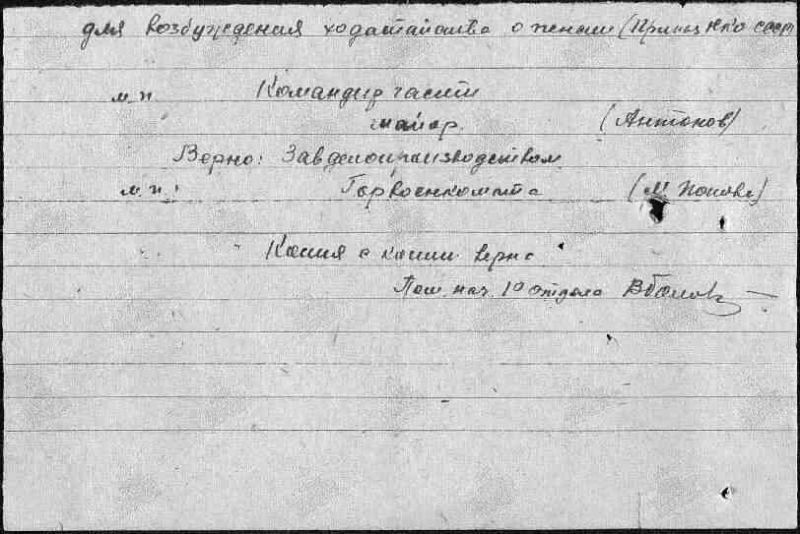 для возбуждения ходатайства о пенсии (Приказ Нко ссср
м.п. Командир части
майор. (Антонов)
Верно: Завделопроизводством
м.п. Горвоенкомата (М Попова)
Копия с копии верно
Пом. нач. 1º отдела